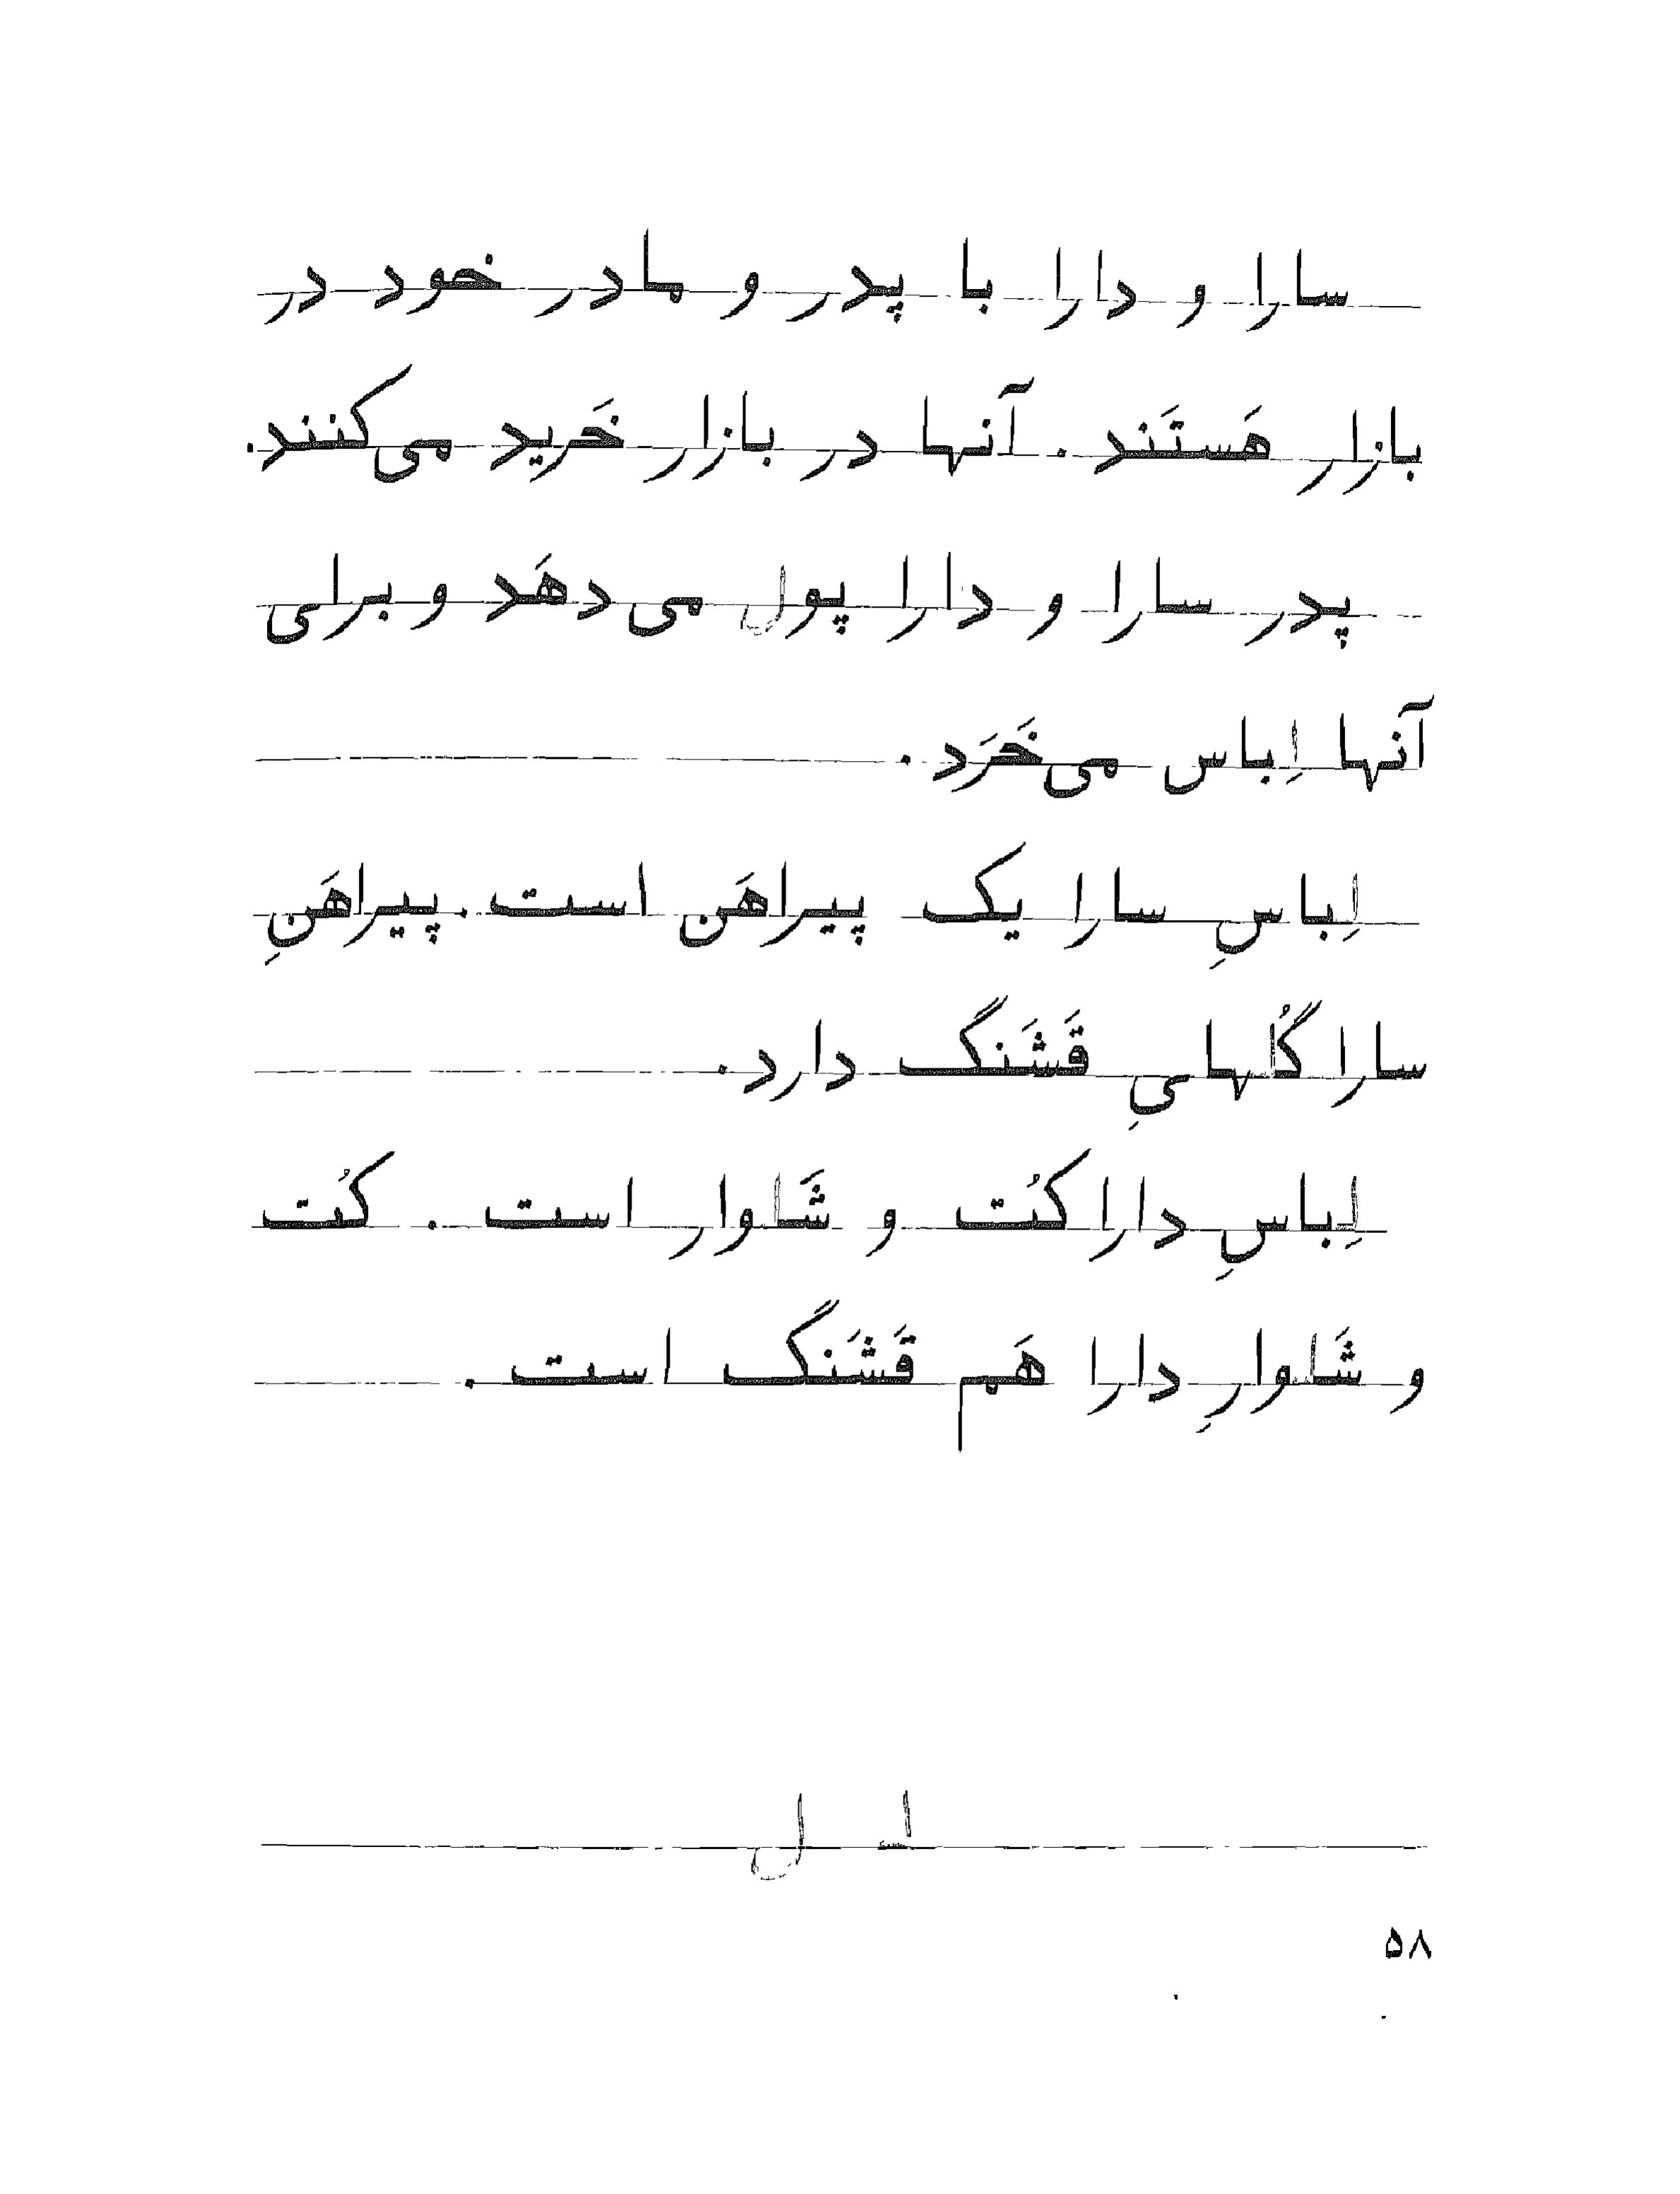 سارا و دارا با پدر و مادر خود در
بازار هَستَند . آنها در بازار خَرید می‌کنند.
پدر سارا و دارا پول می‌دهَد و برای
آنها لِباس می‌خَرَد .
لِباسِ سارا یک پیراهَن است . پیراهَنِ
سارا گُلهایِ قَشَنگ دارد.
لِباسِ دارا کُت و شَلوار است . کُت
و شَلوارِ دارا هَم قَشَنگ است .
لـ ل
۵۸